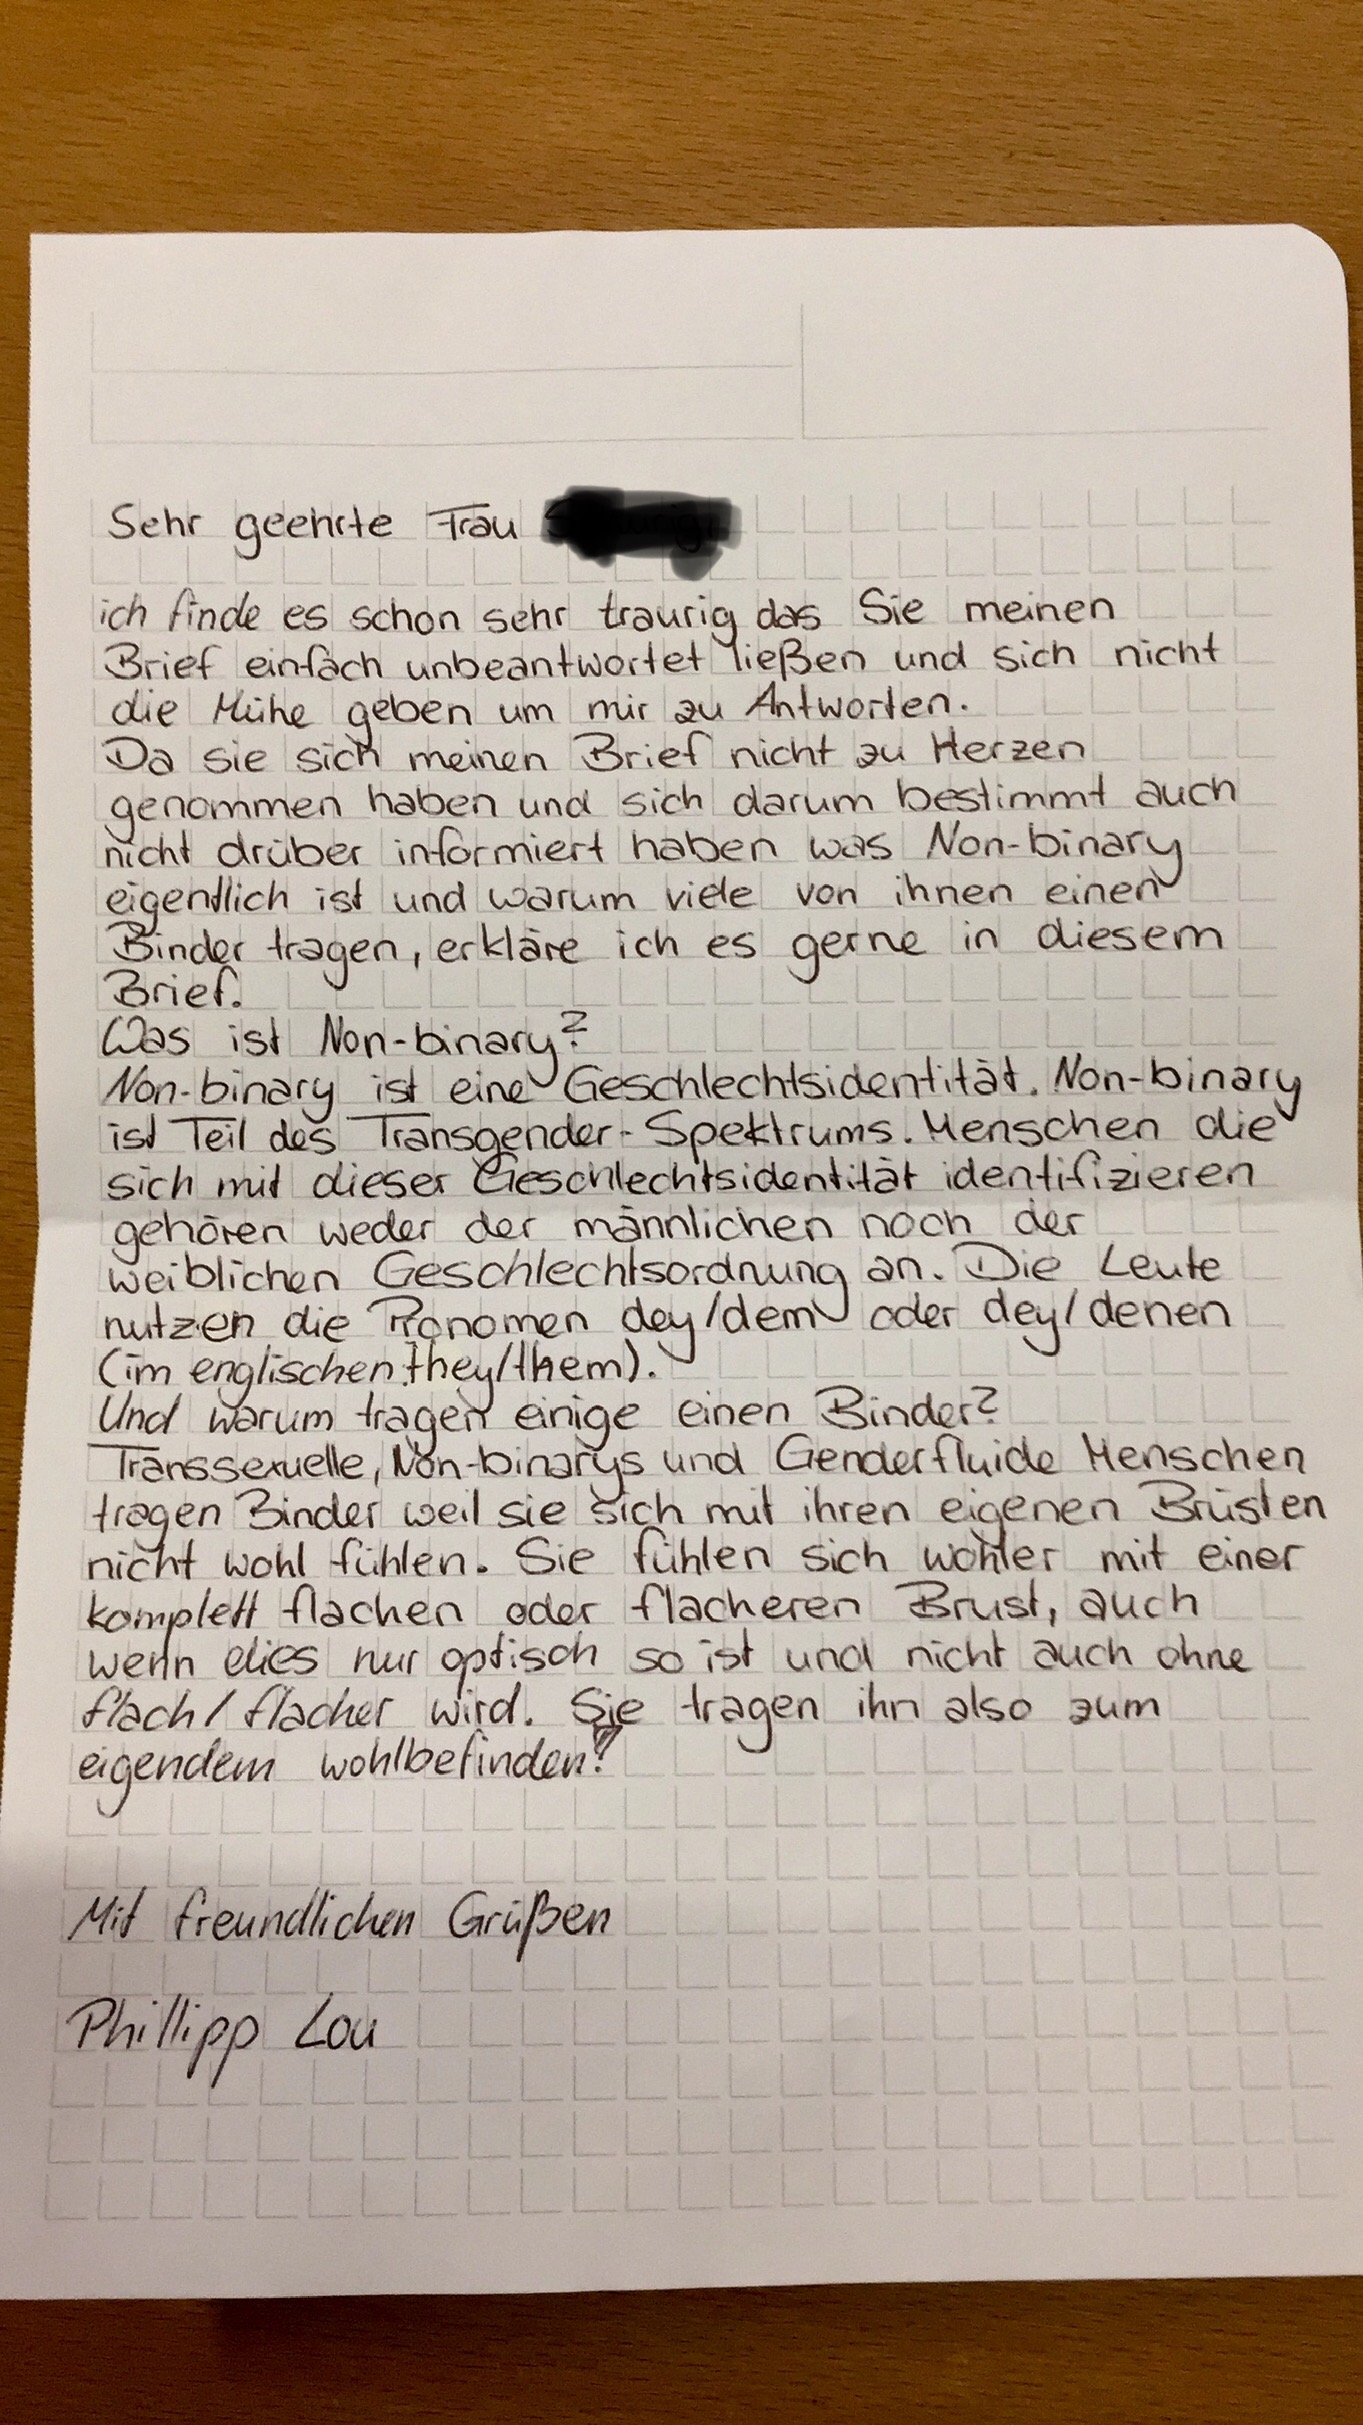 Sehr geehrte Frau
ich finde es schon sehr traurig das Sie meinen
Brief einfach unbeantwortet ließen und sich nicht
die Mühe geben um mir zu Antworten.
Da sie sich meinen Brief nicht zu Herzen
genommen haben und sich darum bestimmt auch
nicht drüber informiert haben was Non-binary
eigentlich ist und warum viele von ihnen einen
Binder tragen, erkläre ich es gerne in diesem
Brief.
Was ist Non-binary?
Non-binary ist eine Geschlechtsidentität. Non-binary
ist Teil des Transgender-Spektrums. Menschen die
sich mit dieser Geschlechtsidentität identifizieren
gehören weder der männlichen noch der
weiblichen Geschlechtsordnung an. Die Leute
nutzen die Pronomen dey/dem oder dey/denen
(im englischen they/them).
Und warum tragen einige einen Binder?
Transsexuelle, Non-binarys und Genderfluide Menschen
tragen Binder weil sie sich mit ihren eigenen Brüsten
nicht wohl fühlen. Sie fühlen sich wohler mit einer
komplett flachen oder flacheren Brust, auch
wenn dies nur optisch so ist und nicht auch ohne
flach/flacher wird. Sie tragen ihn also zum
eigendem wohlbefinden!
Mit freundlichen Grüßen
Phillipp Lou